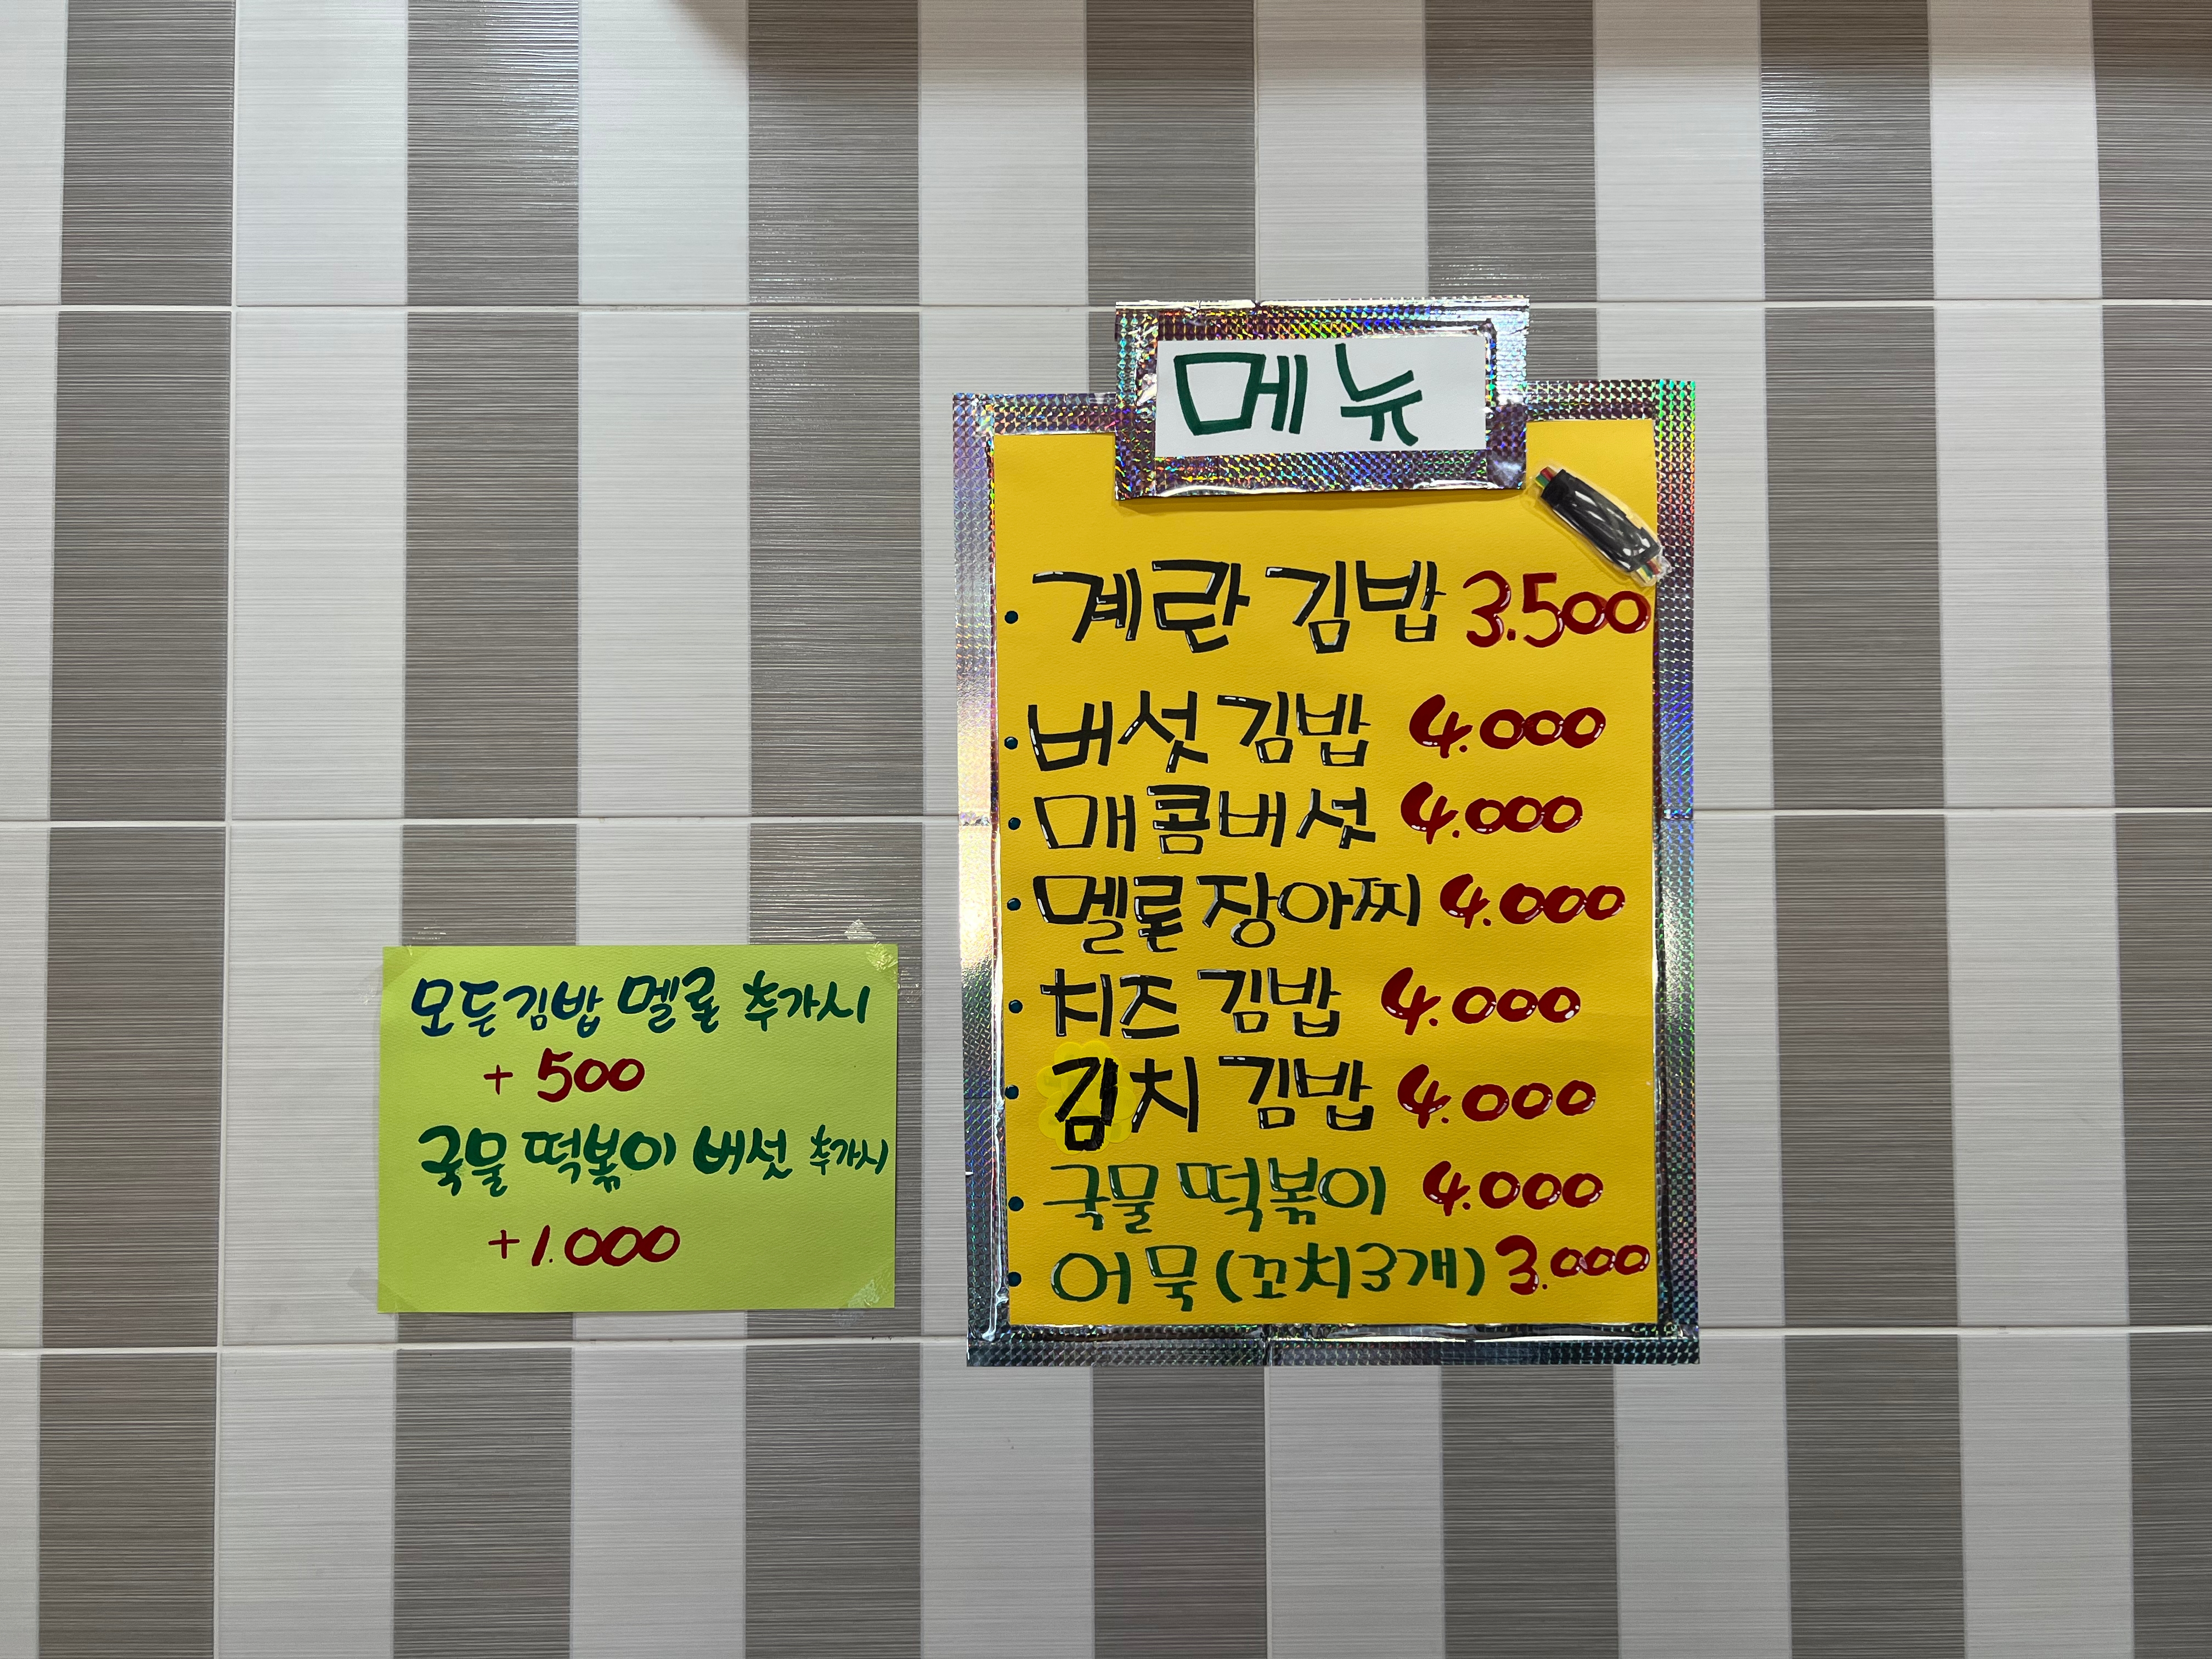 메뉴
· 계란 김밥 3.500
· 버섯 김밥 4.000
· 매콤버섯 4.000
· 멜론 장아찌 4.000
· 치즈 김밥 4.000
· 김치 김밥 4.000
· 국물 떡볶이 4.000
· 어묵(꼬치3개) 3.000
모든김밥 멜론 추가시
+ 500
국물 떡볶이 버섯 추가시
+1.000